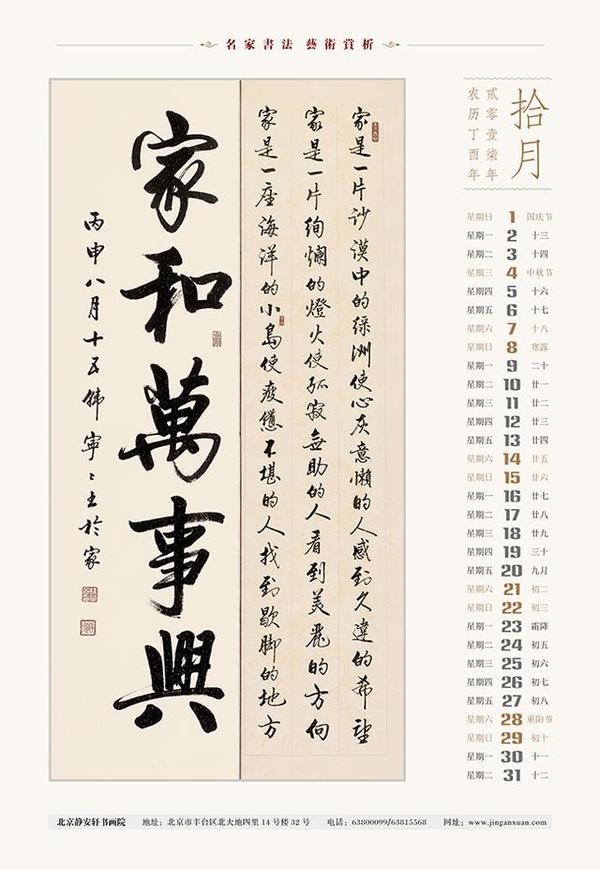 名家書法 藝術賞析
拾月
贰零壹柒年
农历丁酉年
家和萬事興
丙申八月十五
家是一片沙漠中的绿洲使心灰意懒的人感到久違的希望
家是一片绚爛的燈火使孤寂無助的人看到美麗的方向
家是一座海洋的小島使疲憊不堪的人找到歇脚的地方
星期日 1 国庆节
星期一 2 十三
星期二 3 十四
星期三 4 中秋节
星期四 5 十六
星期五 6 十七
星期六 7 十八
星期日 8 寒露
星期一 9 二十
星期二 10 廿一
星期三 11 廿二
星期四 12 廿三
星期五 13 廿四
星期六 14 廿五
星期日 15 廿六
星期一 16 廿七
星期二 17 廿八
星期三 18 廿九
星期四 19 三十
星期五 20 九月
星期六 21 初二
星期日 22 初三
星期一 23 霜降
星期二 24 初五
星期三 25 初六
星期四 26 初七
星期五 27 初八
星期六 28 重阳节
星期日 29 初十
星期一 30 十一
星期二 31 十二
北京静安轩书画院 地址：北京市丰台区北大地四里14号楼32号 电话：63800099/63815568 网址：www.jinganxuan.com